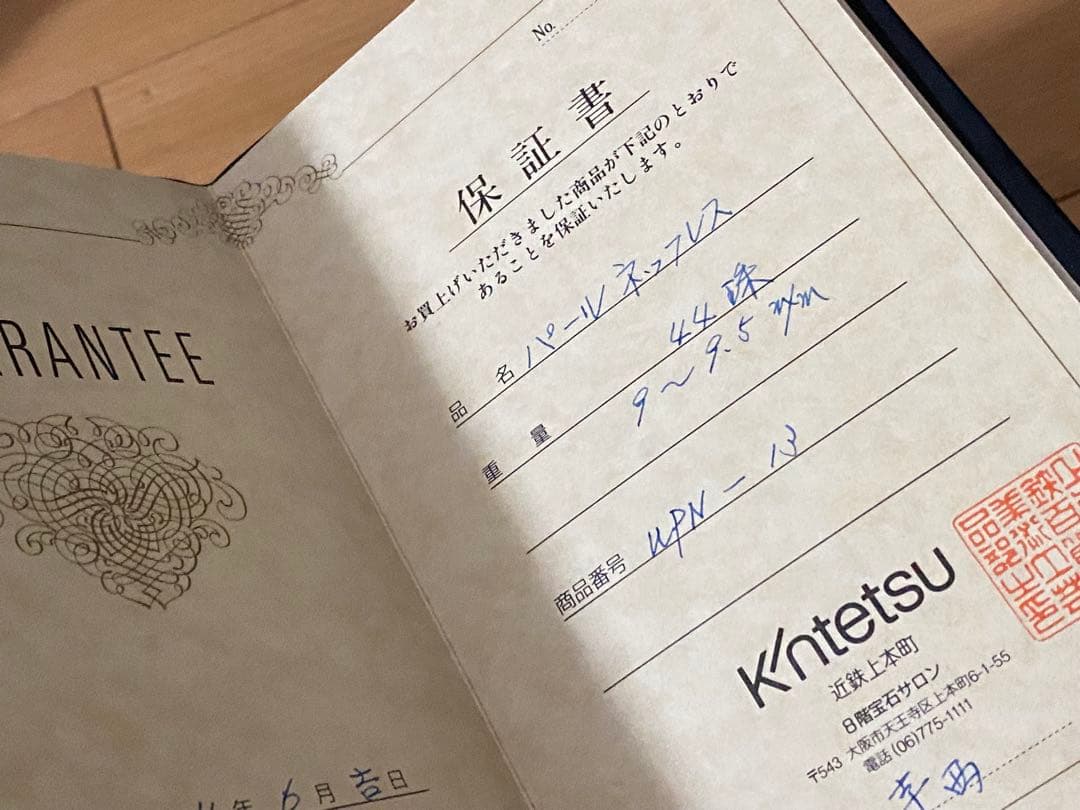 RANTEE
年 6月吉日
No.
保証書
お買上げいただきました商品が下記のとおりで
あることを保証いたします。
品名 パールネックレス
重量 44珠
9〜9.5m/m
商品番号 WPN-13
Kintetsu
近鉄上本町
8階宝石サロン
〒543 大阪市天王寺区上本町6-1-55
電話(06)775-1111